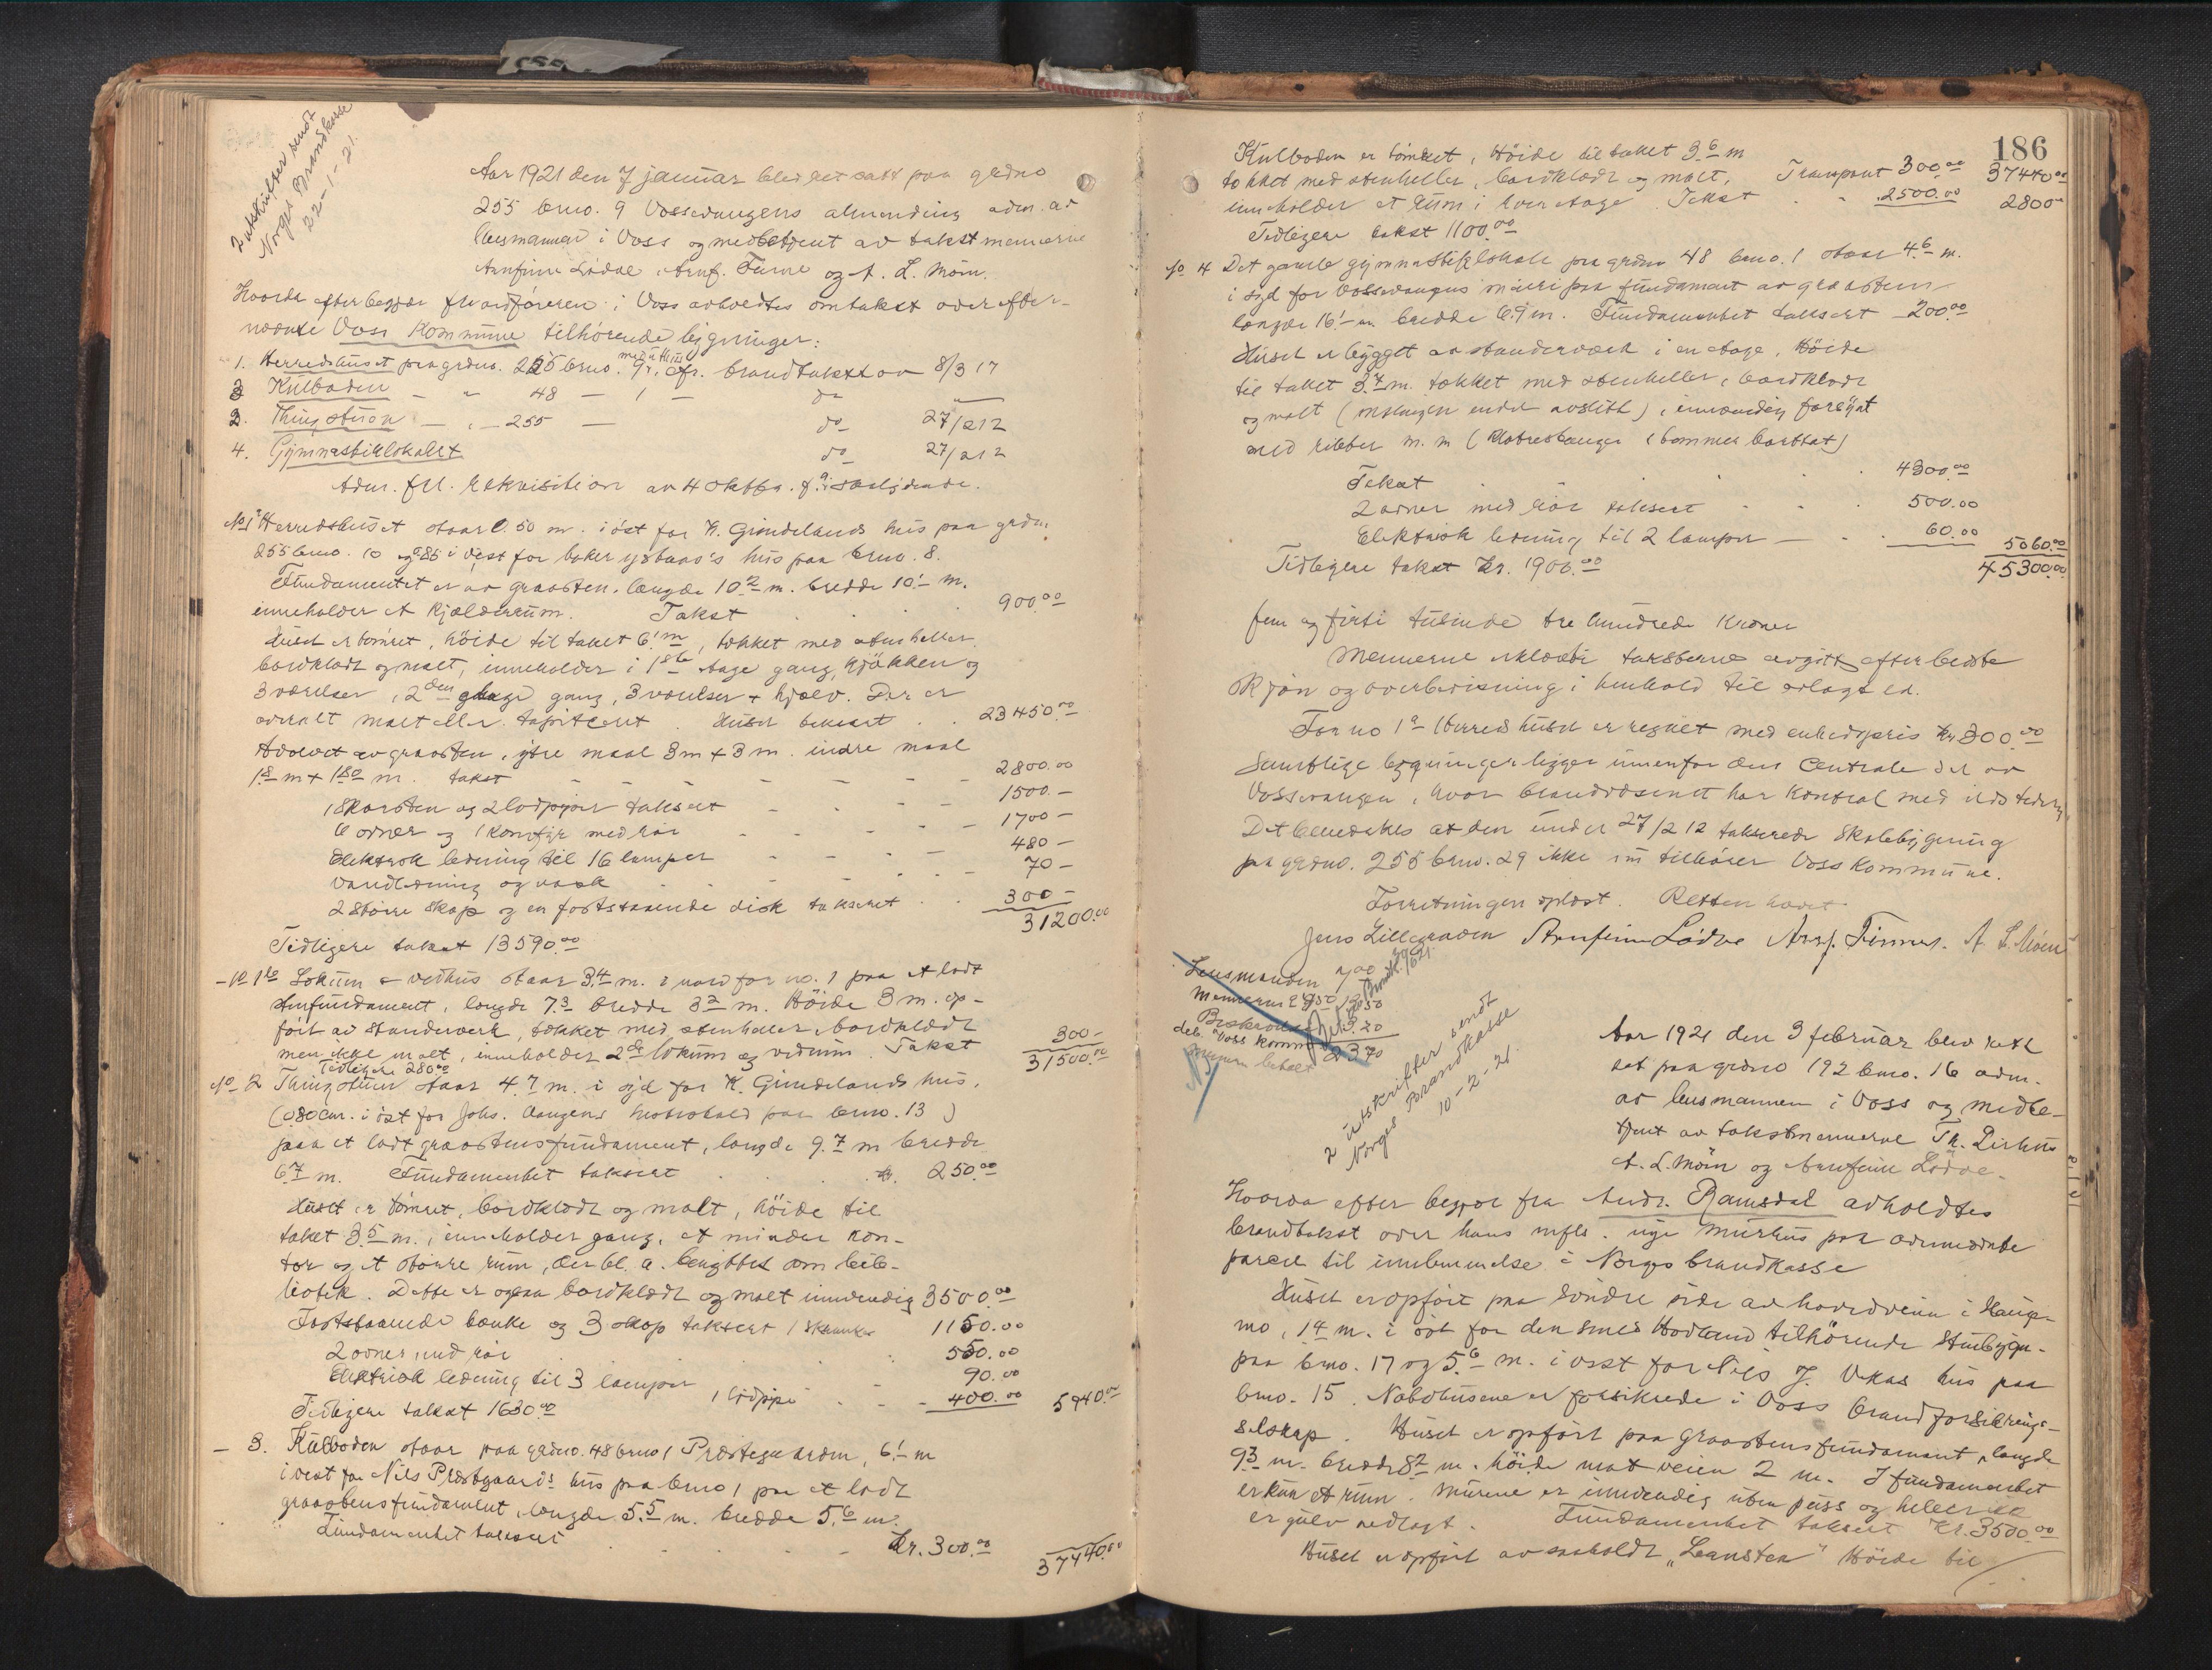 2 utskrifter sendt
Norges Brandkasse
22-1-21.
Aar 1921 den 7 januar blev ret satt paa grdno
255 brno. 9 Vossevangens almending adm. av
lensmannen i Voss og medbetjent av takstmennerne
Arnfinn Lödve, Arnf. Finne og A. L. Moen.
Hvorda efter begjær fra ordföreren i Voss avholdtes omtakst over efter-
nævnte Voss Kommune tilhörende bygninger:
1. Herredshuset paa grdno. 255 brno. 9, cfr. brandtakst av 8/3 17
3 Kulboden — " 48 — 1 — do
2. Thingstuen — " — 255 — do 27/2 12
4. Gymnastiklokalet do 27/2 12
Adm. frl. rekvisition av 4 oktbr. f. a.
No 1a Herredshuset staar 0.50 m. i öst for K. Gindelands hus paa grdn.
255 brno. 10 og 2.85 i vest for baker Ystaas's hus paa brno. 8.
Fundamentet er av graasten, længde 10.2 m. bredde 10.1 m.
inneholder et kjælderrum. Takst 900.00
Huset er tömret, höide til taket 6.1 m, tækket med stenheller
bordklædt og malt, inneholder i 1ste etage gang, kjökken og
3 værelser, 2den etage gang, 3 værelser + hjelv. Der er
overalt malt eller tapiseret. Huset taksert 23450.00
Hvelvet av graasten, ytre maal 3 m + 3 m. indre maal
1.8 m + 1.80 m. takst 2800.00
1 Skorsten og 2 lodpiper taksert 1500.—
6 ovner og 1 komfyr med rör 1700 —
Elektrisk ledning til 16 lamper 480 —
Vandledning og vask 70 —
2 större skap og en fastsittende disk taksert 300 —
31200.00
Tidligere takst 13590.00
— No 1b Lokum & vedhus staar 3.4 m. i nord for no. 1 paa et lodt
stenfundament, længde 7.3 bredde 3.2 m. Höide 3 m. op-
fört av standerverk, tækket med stenheller, bordklædt
men ikke malt, inneholder 2de lokum og vedrum. Takst 300 —
Tidligere 280.00 31500.00
No 2 Thingstuen staar 4.7 m. i syd for K. Gindelands hus,
(0.80 cm. i öst for Johs. Vangens beboelse paa brno. 13)
paa et lodt graastensfundament, længde 9.7 m bredde
6.7 m. Fundamentet taksert kr. 250.00
Huset er tömret, bordklædt og malt, höide til
taket 3.5 m. inneholder gang, et mindre kon-
tor og et större rum, der bl. a. benyttes som bib-
liotek. Dette er ogsaa bordklædt og malt innvendig 3500.00
Fastsittende bænke og 3 skap taksert 1150.00
2 ovner med rör 550.00
Elektrisk ledning til 3 lamper 90.00
1 lodpipe 400.00 5940.00
Tidligere takst 1630.00
— 3. Kulboden staar paa grdno. 48 brno 1 Prestegaarden, 6.1 m
i vest for Nils Prestgaards hus paa brno 1 paa et lodt
graastensfundament, længde 5.5 m. bredde 5.6 m.
Fundamentet taksert Kr. 300.00 37440.00
186
Kulboden er tömret, Höide til taket 3.6 m
tækket med stenheller, bordklædt og malt, Transport 300.00 37440.00
inneholder et rum i hver etage. Takst 2500.00 2800.00
Tidligere takst 1100.00
No 4 Det gamle gymnastiklokale paa grdno 48 brno. 1 staar 4.6 m.
i syd for Vossevangens mur paa fundament av graasten
længde 16.1 m. bredde 6.9 m. Fundamentet taksert 200.00
Huset er bygget av standerværk i en etage. Höide
til taket 3.7 m. tækket med stenheller, bordklædt
og malt (malingen endel avslitt), innvendig forsynt
med ribber m. m (klatrestænger & bommer borttat)
Takst 4300.00
2 ovner med rör taksert 500.00
Elektrisk ledning til 2 lamper — 60.00 5060.00
Tidligere takst Kr. 1900.00 45300.00
fem og firti tusinde tre hundrede kroner
Mennerne erklærte taksterne avgitt efter bedste
skjön og overbevisning i henhold til avlagt ed.
For no 1a Herredshuset er regnet med enhedspris Kr 300.00
Samtlige bygninger ligger innenfor den centrale del av
Vossevangen, hvor brandvæsenet har kontrol med ildsteder
Det bemerkes at den under 27/2 12 takserede skolebygning
paa grdno. 255 brno. 29 ikke nu tilhörer Voss kommune.
Forretningen oplæst. Retten hævet.
Jens Lillegraven Arnfinn Lödve Arnf. Finne. A L Moen
Lensmanden 7.00
Mennerne
deb. Voss kommune 23.70
2 utskrifter sendt
Norges Brandkasse
10-2-21.
Aar 1921 den 3 februar blev rett
sat paa grdno 192 brno. 16 adm.
av lensmannen i Voss og medbe-
tjent av takstmennerne Th. Dirhus
A. L. Moen og Arnfinn Lödve.
Hvorda efter begjær fra Andr. Ramsdal avholdtes
brandtakst over hans nye murhus paa ovennævnte
parcel til innlemmelse i Norges brandkasse
Huset er opfört paa söndre side av hovedveien i Hauge-
mo, 14 m. i öst for den Smed Hodland tilhörende Smibygn.
paa brno. 17 og 5.6 m. i vest for Nils J. Ukas hus paa
brno. 15. Nabohusene er forsikrede i Voss brandforsikrings-
selskap. Huset er opfört paa graastensfundament, længde
9.3 m. bredde 8.2 m. höide mot veien 2 m. I fundamentet
er kun et rum. Murene er innvendig uten puss og heller ikke
er gulv nedlagt. Fundamentet taksert Kr. 3500.00
Huset er opfört av saakaldt "Leansten" Höide til